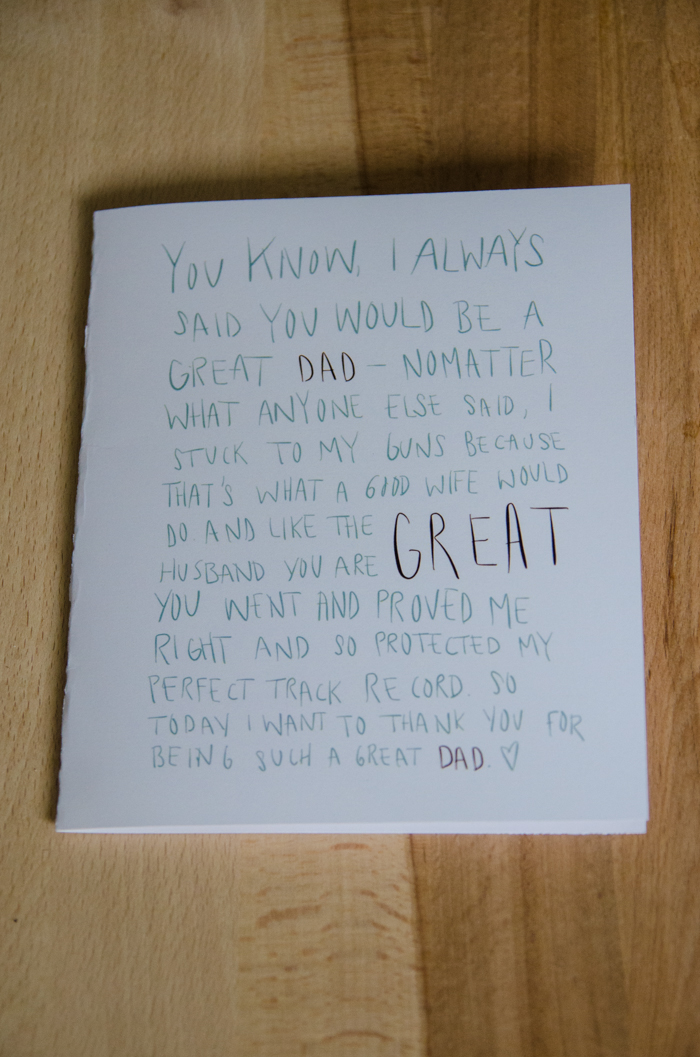 YOU KNOW, I ALWAYS
SAID YOU WOULD BE A
GREAT DAD - NOMATTER
WHAT ANYONE ELSE SAID, I
STUCK TO MY GUNS BECAUSE
THAT'S WHAT A GOOD WIFE WOULD
DO. AND LIKE THE GREAT
HUSBAND YOU ARE
YOU WENT AND PROVED ME
RIGHT AND SO PROTECTED MY
PERFECT TRACK RECORD. SO
TODAY I WANT TO THANK YOU FOR
BEING SUCH A GREAT DAD. ♡